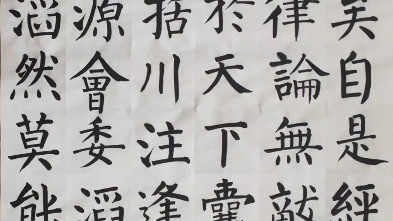 矣自是經
律論無敵
於天下囊
括川注逢
源會委滔
滔然莫能